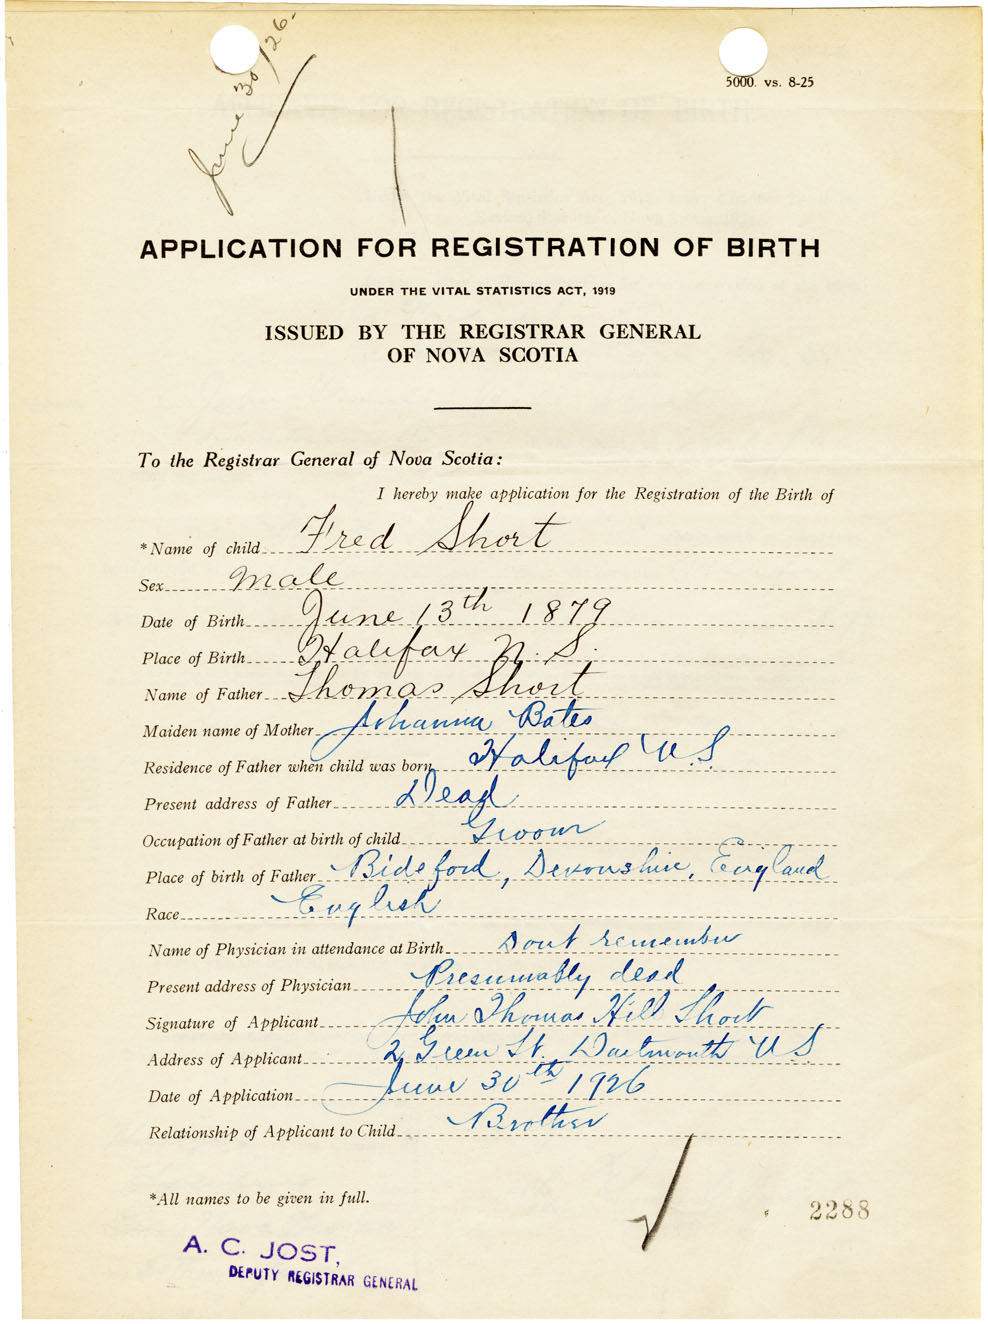 June 30/26.
5000. vs. 8-25
APPLICATION FOR REGISTRATION OF BIRTH
UNDER THE VITAL STATISTICS ACT, 1919
ISSUED BY THE REGISTRAR GENERAL
OF NOVA SCOTIA
To the Registrar General of Nova Scotia:
I hereby make application for the Registration of the Birth of
*Name of child Fred Short
Sex Male
Date of Birth June 13th 1879
Place of Birth Halifax N. S.
Name of Father Thomas Short
Maiden name of Mother Johanna Bates
Residence of Father when child was born Halifax N.S.
Present address of Father Dead
Occupation of Father at birth of child Groom
Place of birth of Father Bideford, Devonshire, England
Race English
Name of Physician in attendance at Birth Dont remember
Present address of Physician Presumably dead
Signature of Applicant John Thomas Hill Short
Address of Applicant 2 Green St. Dartmouth N.S
Date of Application June 30th 1926
Relationship of Applicant to Child Brother
*All names to be given in full.
2288
A. C. JOST,
DEPUTY REGISTRAR GENERAL